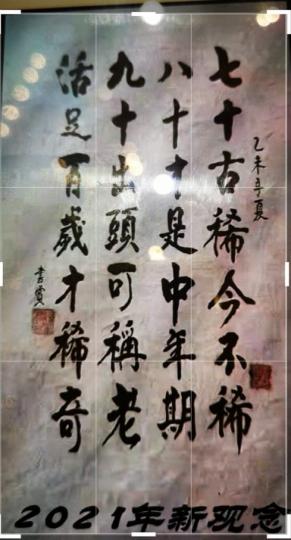 七十古稀今不稀
八十才是中年期
九十出頭可稱老
活足百歲才稀奇
2021年新观念